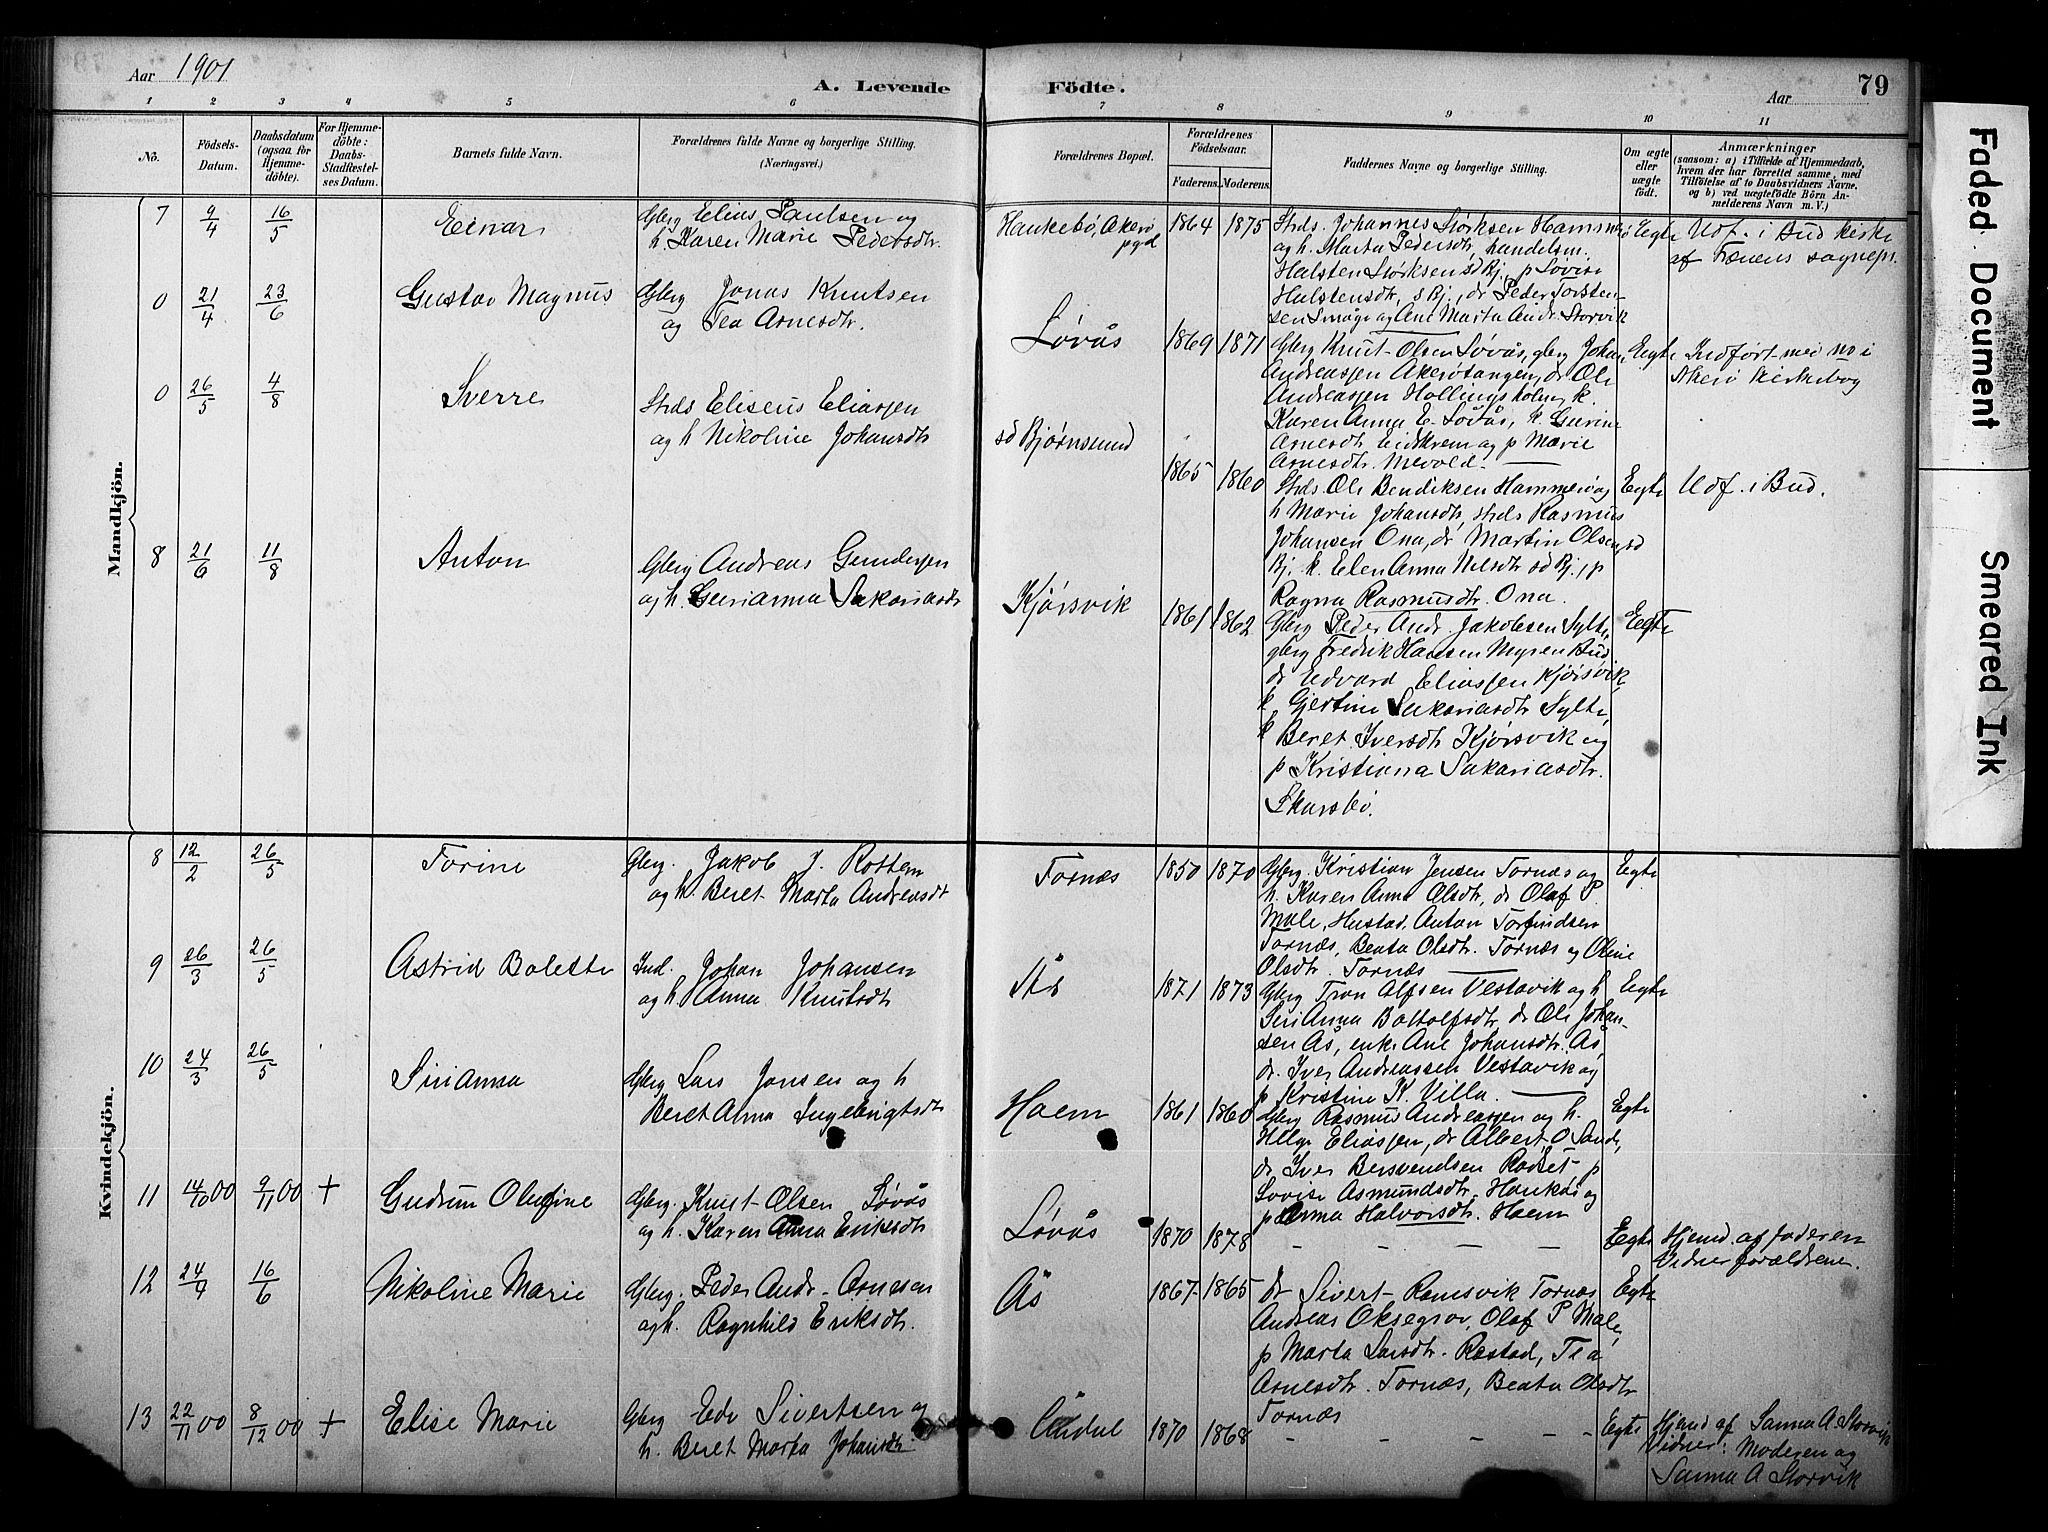 Aar 1901
A. Levende Födte.
Aar
79
1 2 3 4 5 6 7 8 9 10 11
No.
Födsels-
Datum.
Daabsdatum
(ogsaa for
Hjemme-
döbte).
For Hjemme-
döbte:
Daabs-
Stadfestel-
ses Datum.
Barnets fulde Navn.
Forældrenes fulde Navne og borgerlige Stilling.
(Næringsvei.)
Forældrenes Bopæl.
Forældrenes
Födselsaar.
Faderens. Moderens.
Faddernes Navne og borgerlige Stilling.
Om ægte
eller
uægte
födt.
Anmærkninger
(saasom: a) i Tilfælde af Hjemmedaab,
hvem der har forrettet samme, med
Tilföielse af to Daabsvidners Navne,
og b) ved uægtefödte Börn An-
melderens Navn m. V.)
Mandkjön.
7 9/4 16/5 Einar
Gbrg Elias Paulsen og
h. Karen Marie Pedersdtr.
Haukebø, Akerø
pgd
1864 1875
Strds. Johannes Størksen Hammerø
og h. Marta Pedersdtr, handelsm.
Halsten Størksen sd Bj., p Lovise
Halstensdtr, s Bj., dr Peder Torsten-
sen Småge og Ane Marta Andr. Storvik
Egte
Udf. i Bud kirke
af Frænens sognepr.
0 21/4 23/6 Gustav Magnus
Gbrg Jonas Knutsen
og Tea Arnesdtr.
Løvås
1869 1871
Gbrg Knut Olsen Løvås, gbrg Johan
Andreassen Akerøtangen, dr Ole
Andreassen Hollingsholm, k.
Karen Anna E. Løvås, k. Gurine
Arnesdtr. Eidskrem og p Marie
Arnesdtr. Mevold.
Egte
Indført med no i
Akerø kirkebog
0 26/5 4/8 Sverre
Strds Eliseus Eliassen
og h Nikoline Johansdtr
sd Bjørnsund
1865 1860
Strds. Ole Bendiksen Hammerø og
h Marie Johansdtr, strds Rasmus
Johansen Ona, dr Martin Olsen, sd
Bj. k. Elen Anna Nilsdtr sd Bj., p
Ragna Rasmusdtr. Ona.
Egte
Udf. i Bud.
8 21/6 11/8 Anton
Gbrg Andreas Gundersen
og h. Gurianna Sakariasdtr
Kjørsvik
1861 1862
Gbrg Peder Andr Jakobsen Sylte,
gbrg Fredrik Hansen Myren Bud
dr Edvard Eliassen Kjørsvik,
k. Gjertine Sakariasdtr Sylte,
k Beret Iversdtr Kjørsvik og
p Kristiana Sakariasdtr.
Skarsbø.
Egte
Kvindekjön.
8 12/2 26/5 Torine
Gbrg. Jakob J. Rottem
og h. Beret Marta Andreasdt
Tornæs
1850 1870
Gbrg. Kristian Jensen Tornæs og
h. Karen Anna Olsdtr, dr Olaf P.
Male, Hustad, Anton Torfindsen
Tornæs, Beata Olsdtr. Tornæs og Oline
Olsdtr. Tornæs
Egte
9 26/3 26/5 Astrid Bolette
Ind. Johan Johansen
og h. Anna Knutsdtr
Ås
1871 1873
Gbrg Tron Alfsen Vestavik og h
Siri Anna Bottolfsdtr dr Ole Johan-
sen Ås, enke Ane Johansdtr. Ås,
dr. Iver Andreassen Vestavik og
p Kristine K. Villa.
Egte
10 24/3 26/5 Sirianna
Gbrg Lars Jonsen og h
Beret Anna Ingebrigtsdtr
Haem
1861 1860
Gbrg Rasmus Andreassen og h.
Helge Eliassen, dr Albert O Sande,
dr Iver Bersvendsen Rødset p
Lovise Asmundsdtr. Haukås og
p Anna Halvorsdtr. Haem
Egte
11 14/10 00 9/11 00 + Gudrun Olufine
Gbrg. Knut Olsen Løvås
og h. Karen Anna Eriksdtr
Løvås
1870 1878
– – – – –
Egte
Hjemd. af faderen
Vidner forældrene.
12 24/4 16/6 Nikoline Marie
Gbrg. Peder Andr. Arnesen
og h. Ragnhild Eriksdtr.
Ås
1867 1865
Dr Sivert Ramsvik Tornæs
Andreas Oksegrov, Olaf P Male,
p Marta Larsdtr. Rastad, Tea
Arnesdtr. Tornæs, Beata Olsdtr
Tornæs
Egte
13 22/11 00 8/12 00 + Elise Marie
Gbrg Edv Sivertsen og
h. Beret Marta Johansdtr
Årdal
1870 1868
– – – – –
Egte
Hjemd af Sanna A Storvik
Vidner: Moderen og
Sanna A Storvik
Faded Document
Smeared Ink